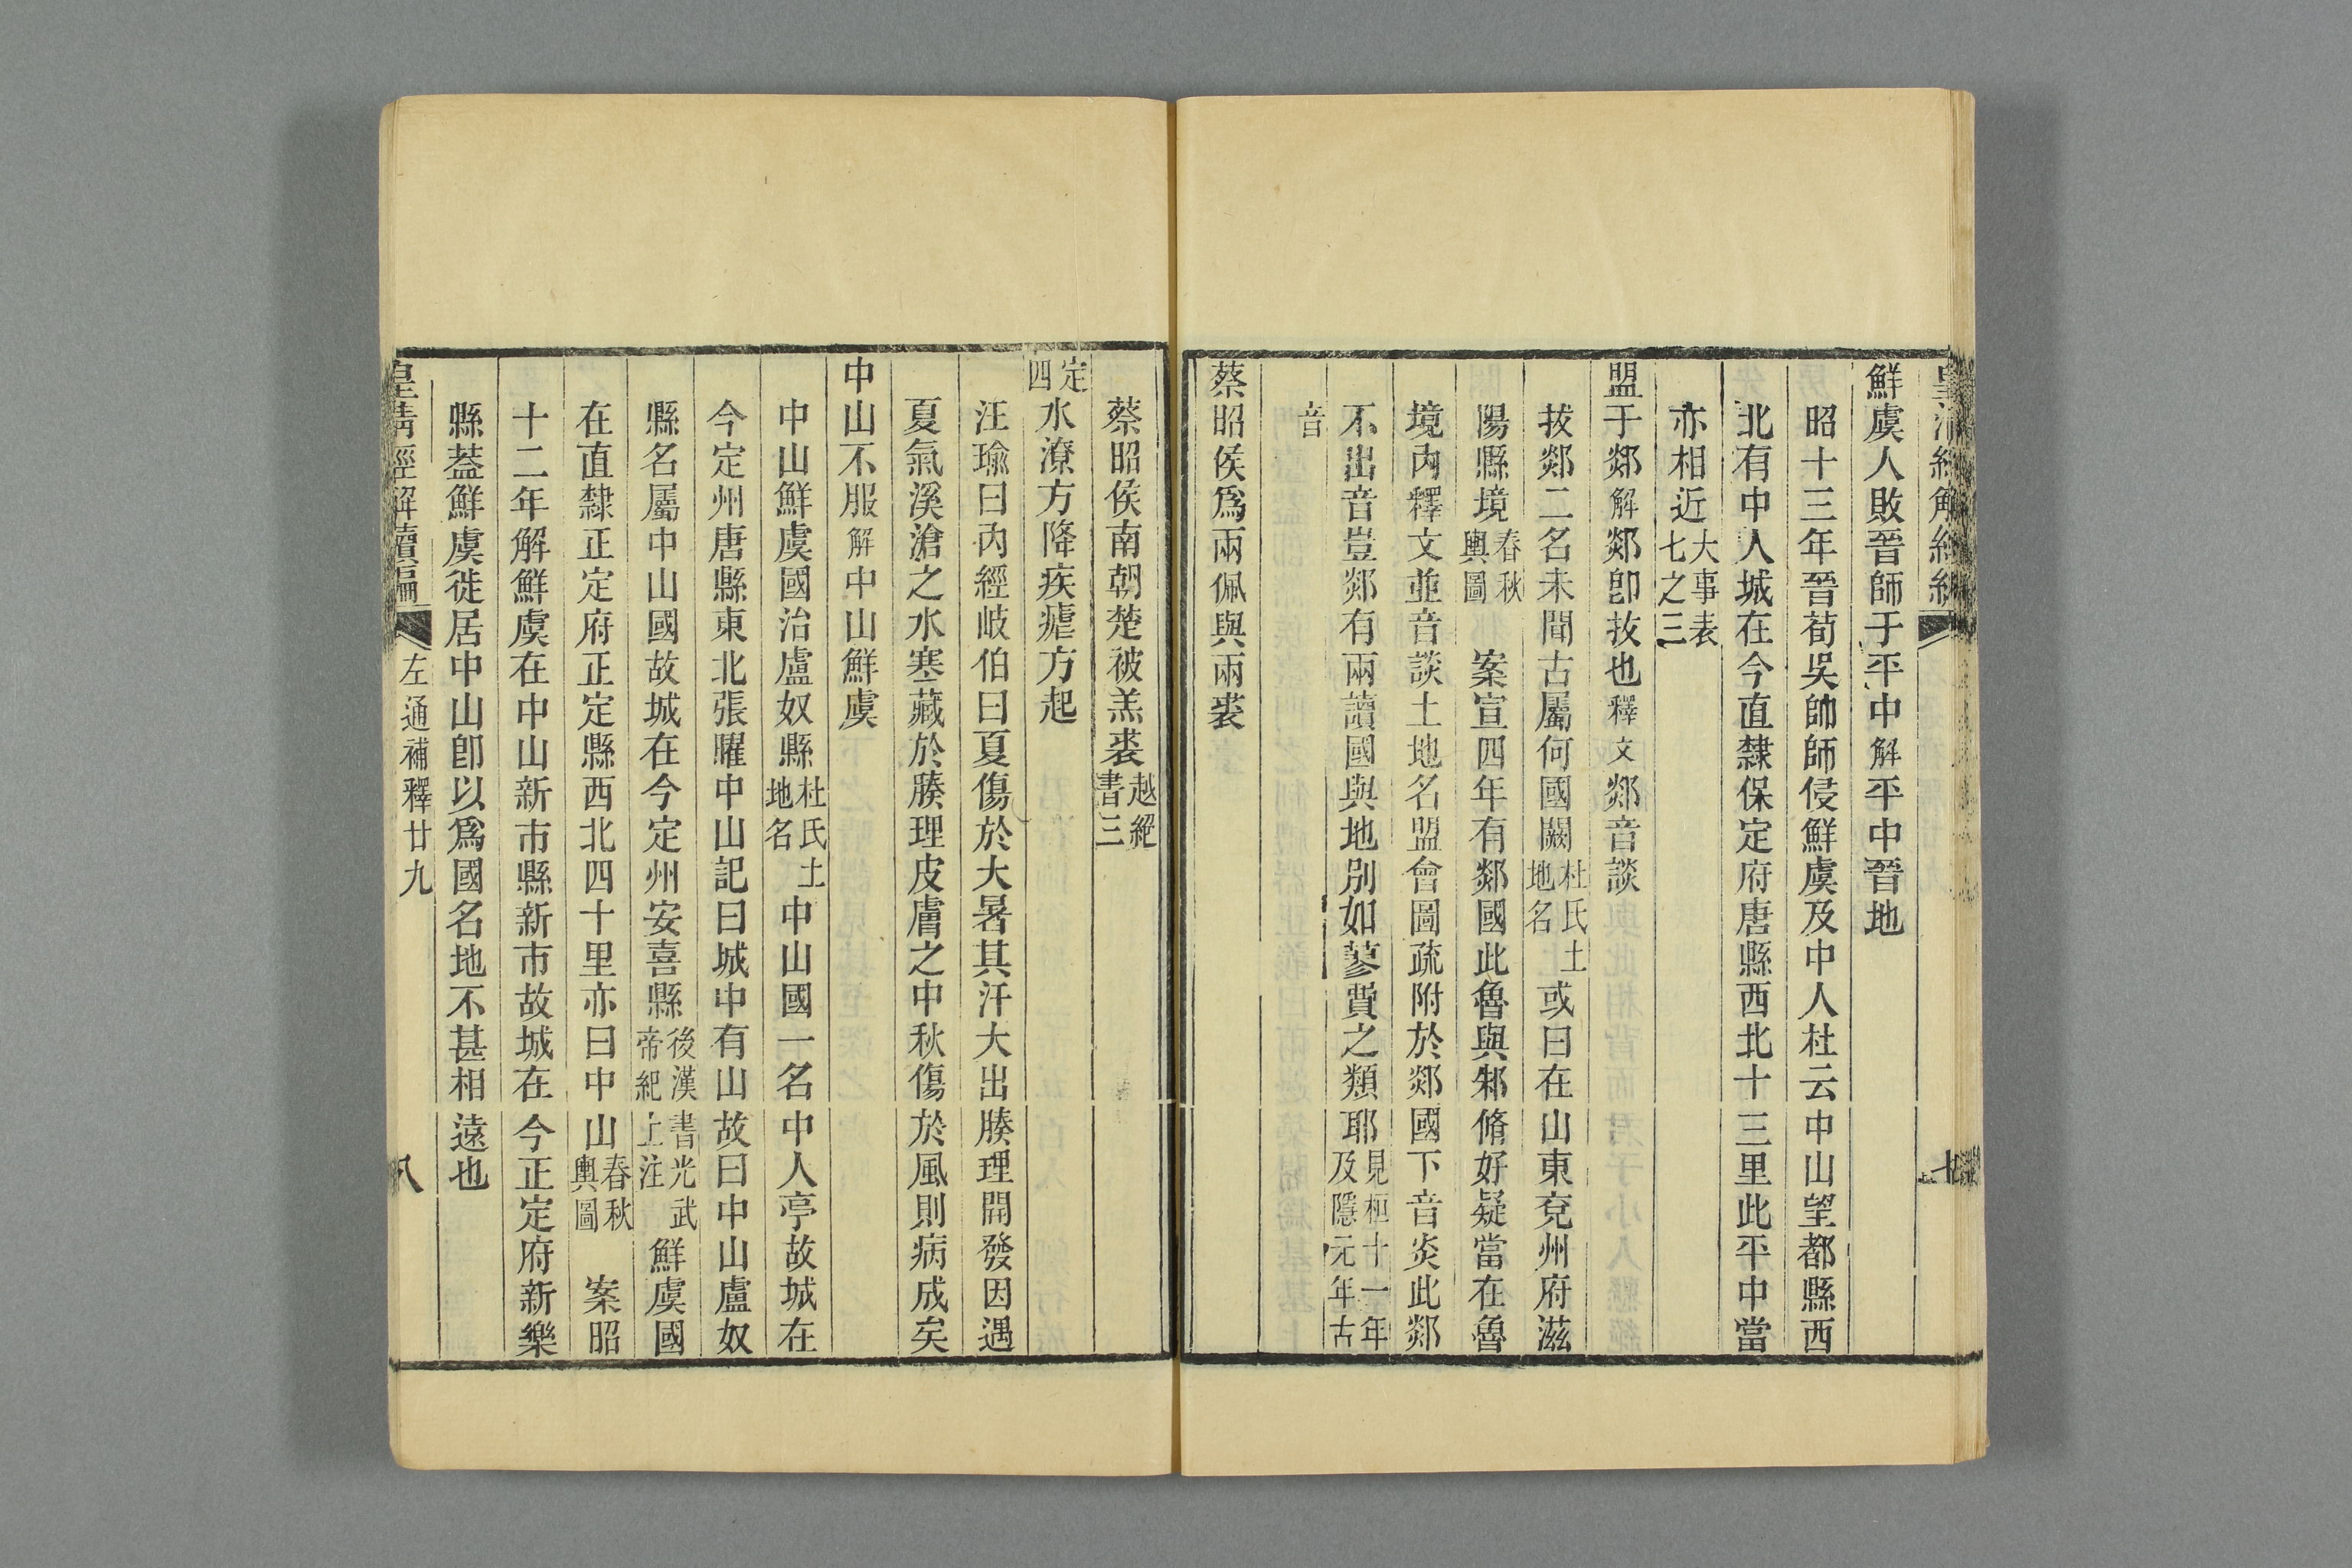 鮮虞人敗晉師于平中解平中晉地
昭十三年晉荀吳帥師侵鮮虞及中人杜云中山望都縣西
北有中人城在今直隸保定府唐縣西北十三里此平中當
亦相近大事表七之三
盟于郯解郯卽拔也釋文郯音談
拔郯二名未聞古屬何國闕杜氏土地名或曰在山東兗州府滋
陽縣境春秋輿圖 案宣四年有郯國此魯與邾脩好疑當在魯
境內釋文並音談土地名盟會圖疏附於郯國下音炎此郯
不出音豈郯有兩讀國與地別如蓼費之類耶見桓十一年及隱元年古
音
蔡昭侯爲兩佩與兩裘
蔡昭侯南朝楚被羔裘越絕書三
定四水潦方降疾瘧方起
汪瑜曰內經岐伯曰夏傷於大暑其汗大出腠理開發因遇
夏氣溪滄之水寒藏於腠理皮膚之中秋傷於風則病成矣
中山不服解中山鮮虞
中山鮮虞國治盧奴縣杜氏土地名中山國一名中人亭故城在
今定州唐縣東北張曜中山記曰城中有山故曰中山盧奴
縣名屬中山國故城在今定州安喜縣後漢書光武帝紀上注鮮虞國
在直隸正定府正定縣西北四十里亦曰中山春秋輿圖 案昭
十二年解鮮虞在中山新市縣新市故城在今正定府新樂
縣葢鮮虞徙居中山卽以爲國名地不甚相遠也
皇清經解續編 左通補釋廿九 八